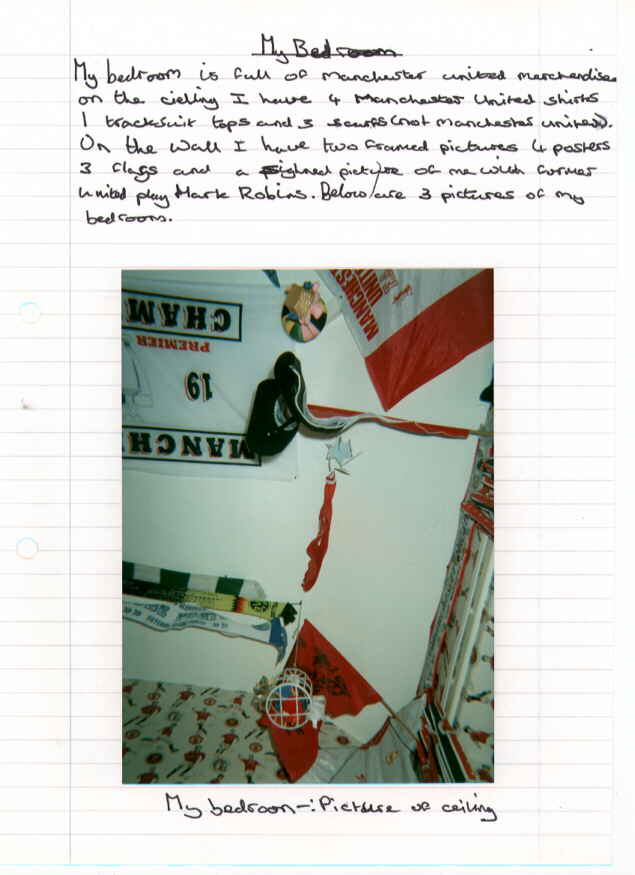 My Bedroom
My bedroom is full of manchester united merchandise
on the cieling I have 4 Manchester United shirts
1 tracksuit tops and 3 scarfs (not manchester united).
On the wall I have two framed pictures 4 posters
3 flags and a sighned picture of me with former
united play Mark Robins. Below are 3 pictures of my
bedroom.
MANCHES
UNIT
CHAM
PREMIER
19
MANCH
My bedroom-: Picture of ceiling